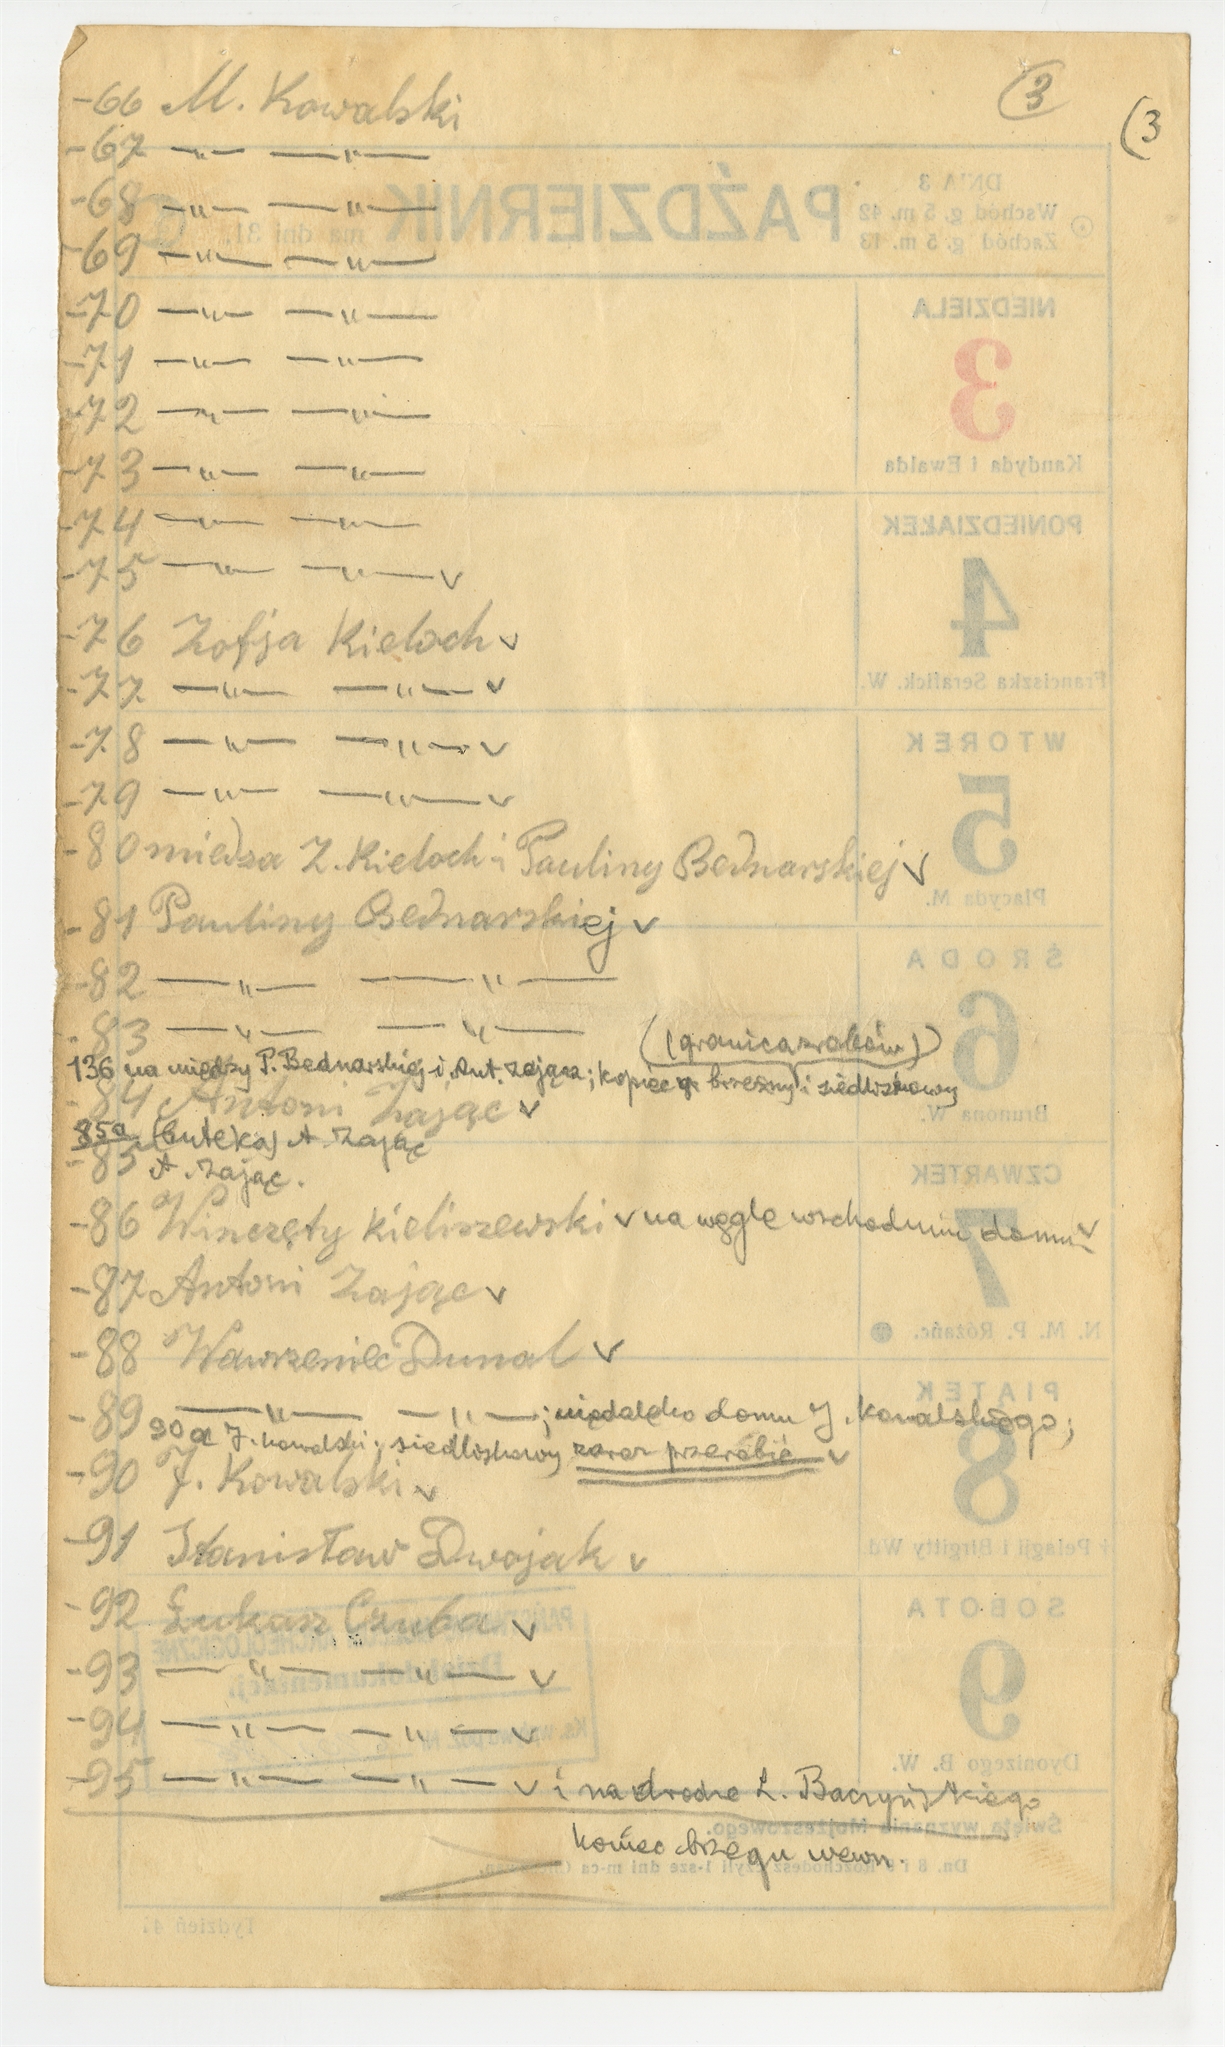 (3)
(3
-66 M. Kowalski
-67 —"— —"—
-68 —"— —"—
-69 —"— —"—
-70 —"— —"—
-71 —"— —"—
-72 —"— —"—
-73 —"— —"—
-74 —"— —"—
-75 —"— —"— v
-76 Zofja Kieloch v
-77 —"— —"— v
-78 —"— —"— v
-79 —"— —"— v
-80 miedza Z. Kieloch i Pauliny Bednarskiej v
-81 Pauliny Bednarskiej v
-82 —"— —"—
-83 —"— —"—
(granica
136 na między P. Bednarskiej i Ant. Zająca; kopiec brzeżny i siedliskowy
-84 Antoni Zając v
85a (buteka) A. Zając
-85 A. Zając.
-86 Winczęty Kieliszewski v na węgle wschodnim domu v
-87 Antoni Zając v
-88 Wawrzeniec Dunal v
-89 —"— —"—; niedaleko domu J. Kowalskiego;
90a J. Kowalski; siedliskowy zaraz przerobić v
-90 J. Kowalski v
-91 Stanisław Dwojak v
-92 Łukasz Czuba v
-93 —"— —"— v
-94 —"— —"— v
-95 —"— —"— v i na drodze L. Baczyńskiego
koniec brzegu wewn.
PAŹDZIERNIK
ma dni 31.
DNIA 3
Wschód g. 5 m. 42
Zachód g. 5 m. 13
NIEDZIELA
3
Kandyda i Ewalda
PONIEDZIAŁEK
4
Franciszka Serafick. W.
WTOREK
5
Placyda M.
ŚRODA
6
Brunona W.
CZWARTEK
7
N. M. P. Różańc.
PIĄTEK
8
† Pelagji i Birgitty Wd.
SOBOTA
9
Dyonizego B. W.
Święta wyznania Mojżeszowego.
Dn. 8 i 9 Rozchodesz czyli 1-sze dni m-ca
Tydzień 41